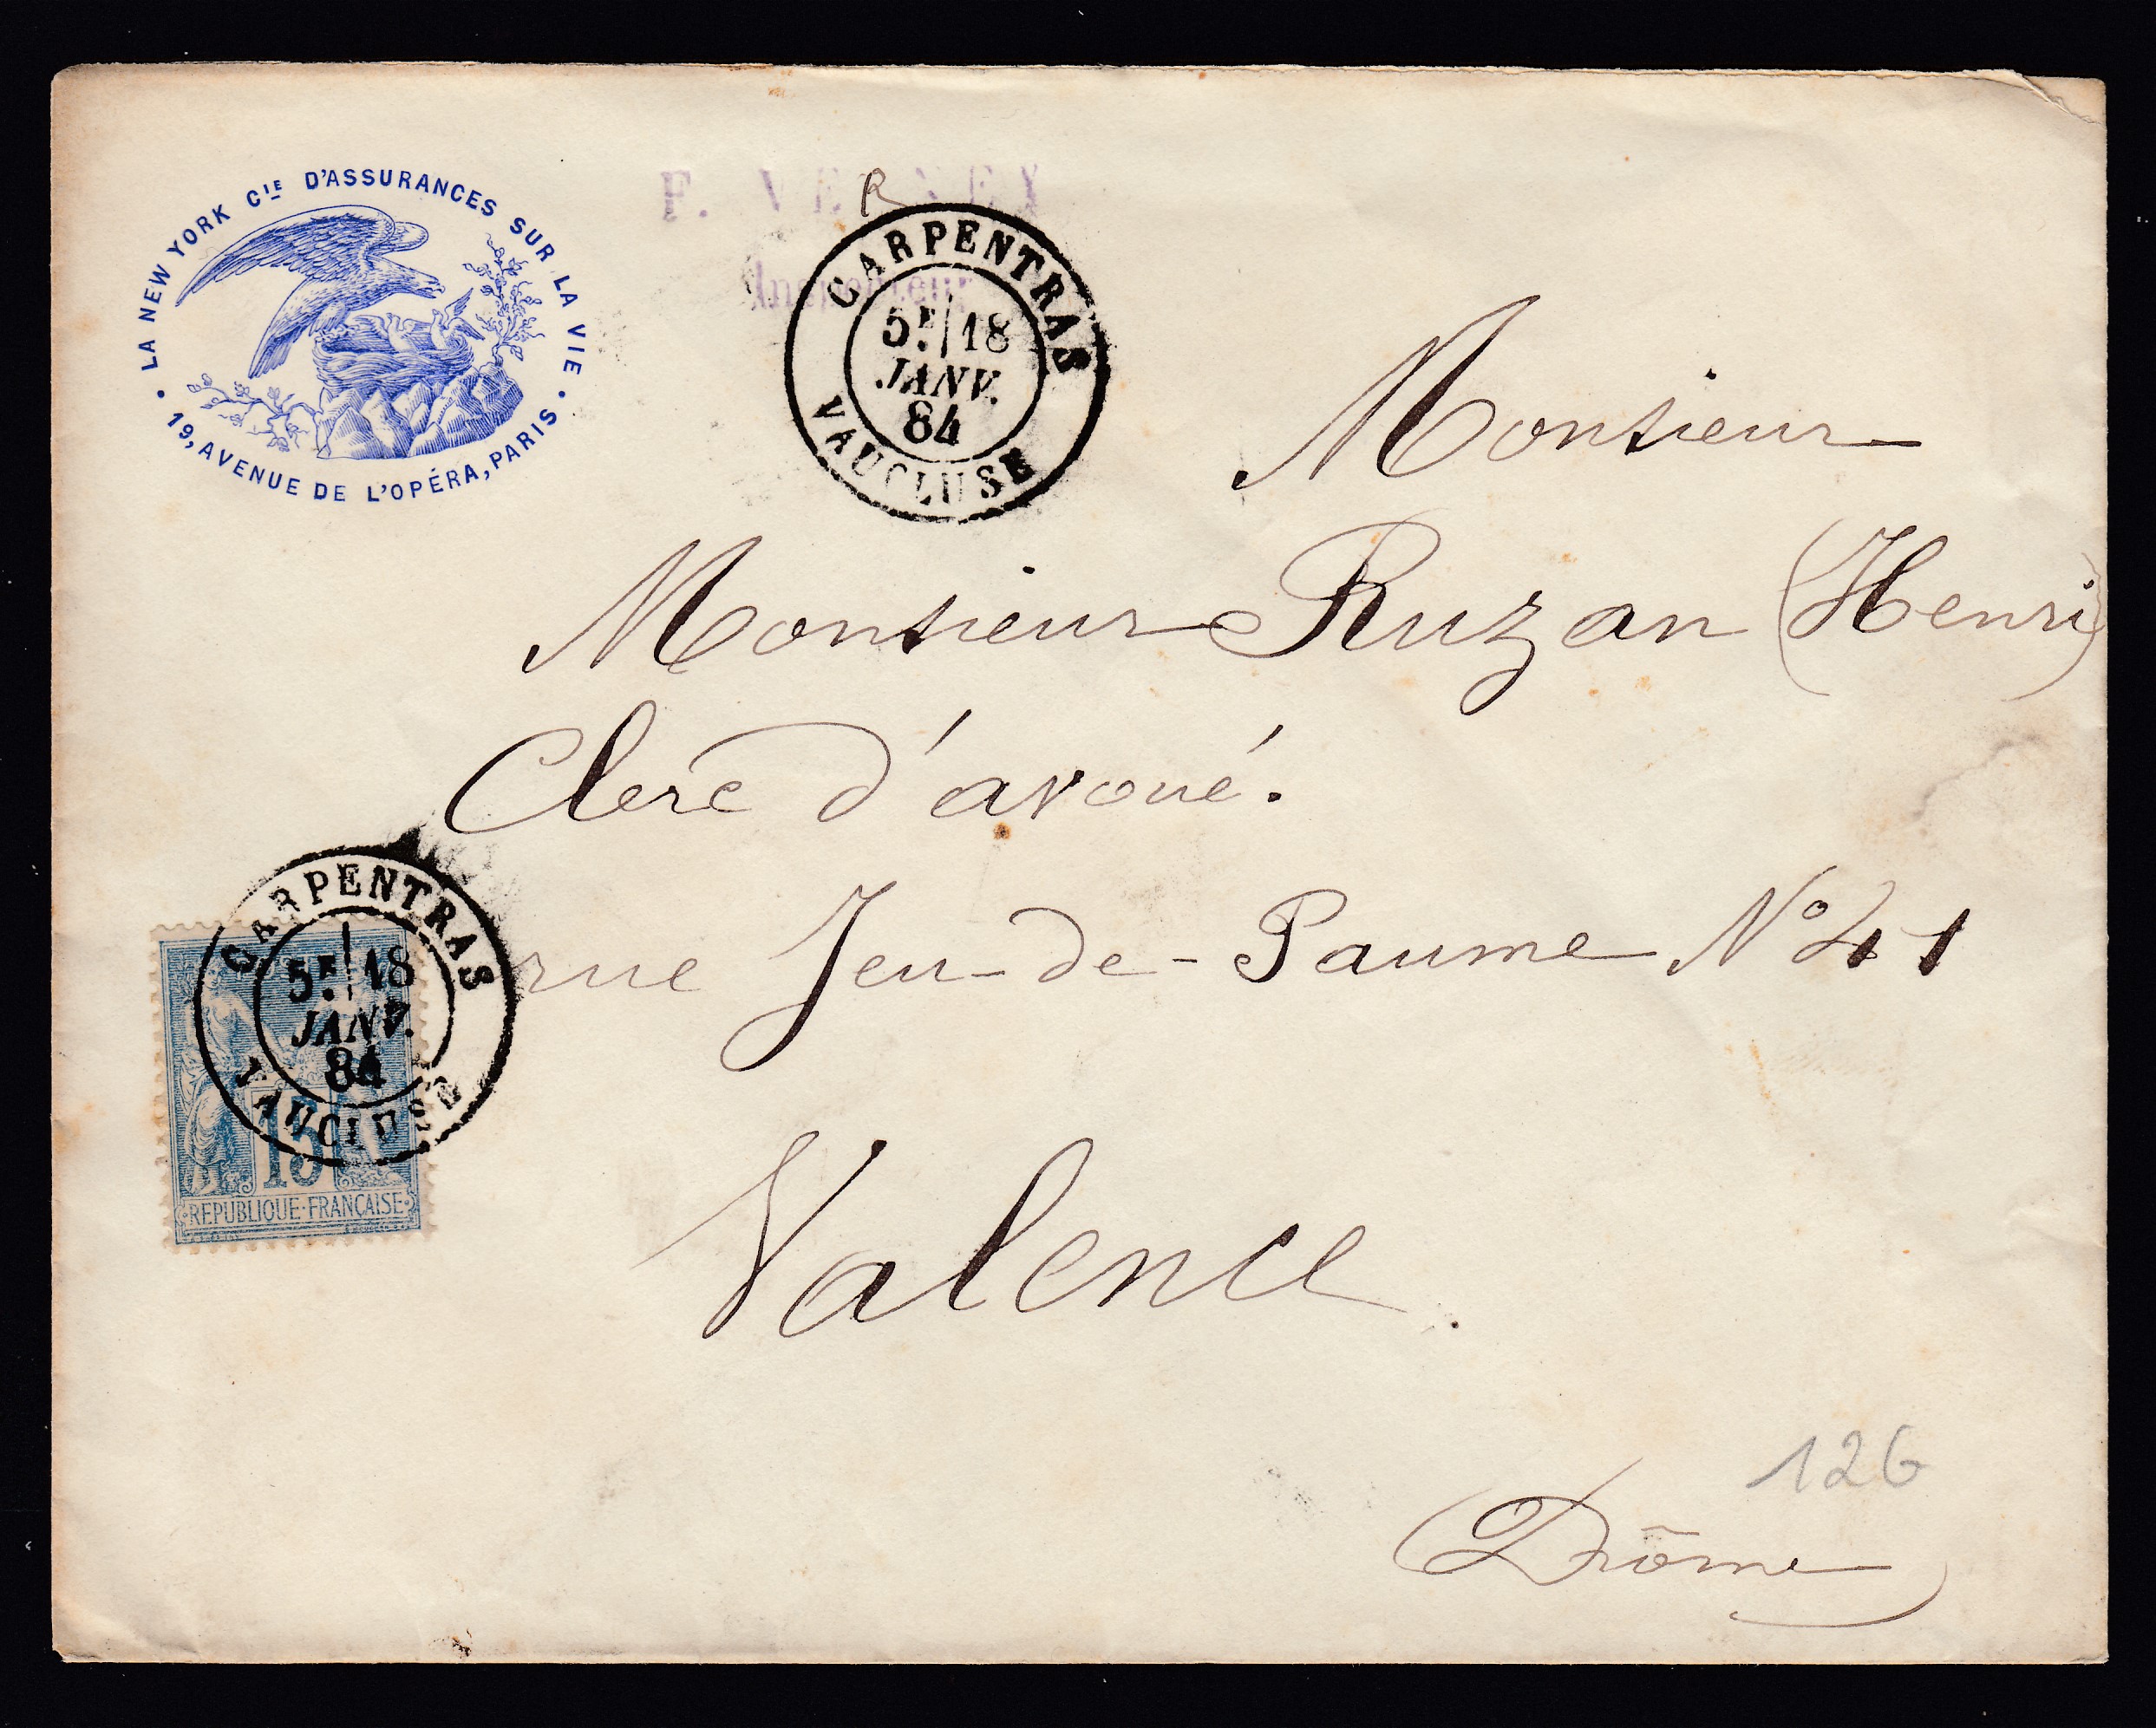 LA NEW YORK CIE D'ASSURANCES SUR LA VIE
19, AVENUE DE L'OPÉRA, PARIS
F.
R
Inspecteur
CARPENTRAS
5E 18
JANV.
84
VAUCLUSE
Monsieur
Monsieur Ruzan (Henri)
Clerc d'avoué.
rue Jeu-de-Paume No 41
Valence
(Drôme)
126
CARPENTRAS
5E 18
JANV.
84
VAUCLUSE
15
REPUBLIQUE·FRANÇAISE